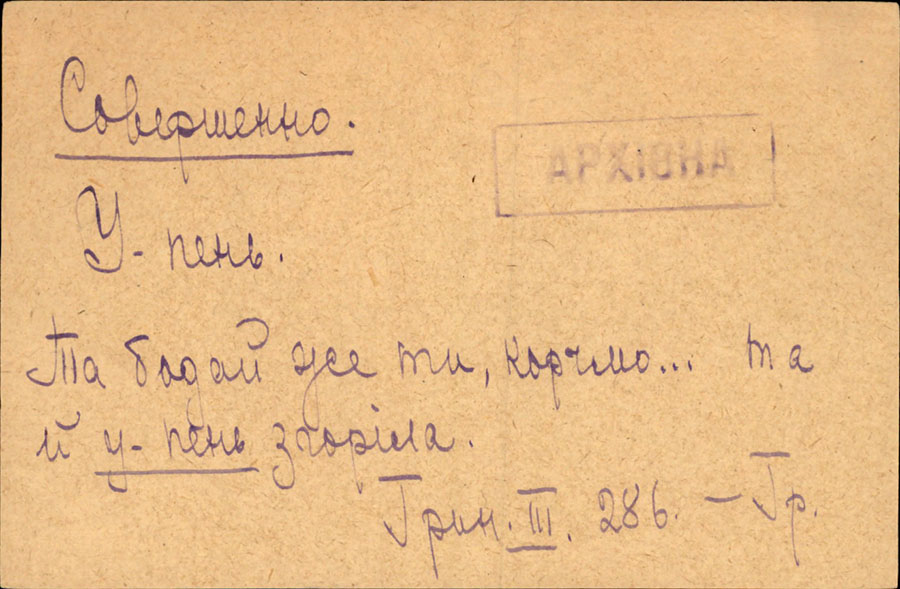 Совершенно.
АРХІВНА
У-пень.
Та бодай же ти, корчмо... та
й у-пень згоріла.
Грин. III. 286. — Гр.